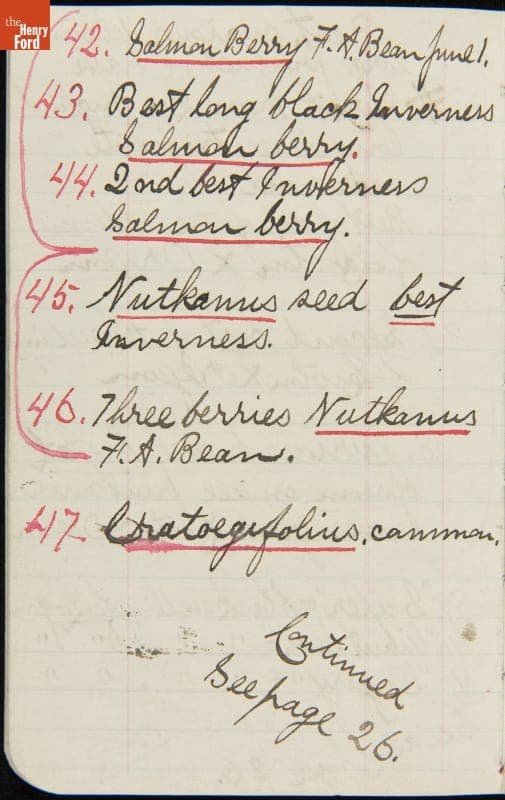 the
Henry
Ford
42. Salmon Berry F. A. Bean June 1.
43. Best long black Inverness
Salmon berry.
44. 2nd best Inverness
Salmon berry.
45. Nutkanus seed best
Inverness.
46. Three berries Nutkanus
F. A. Bean.
47. Cratoegifolius, common.
Continued
See page 26.